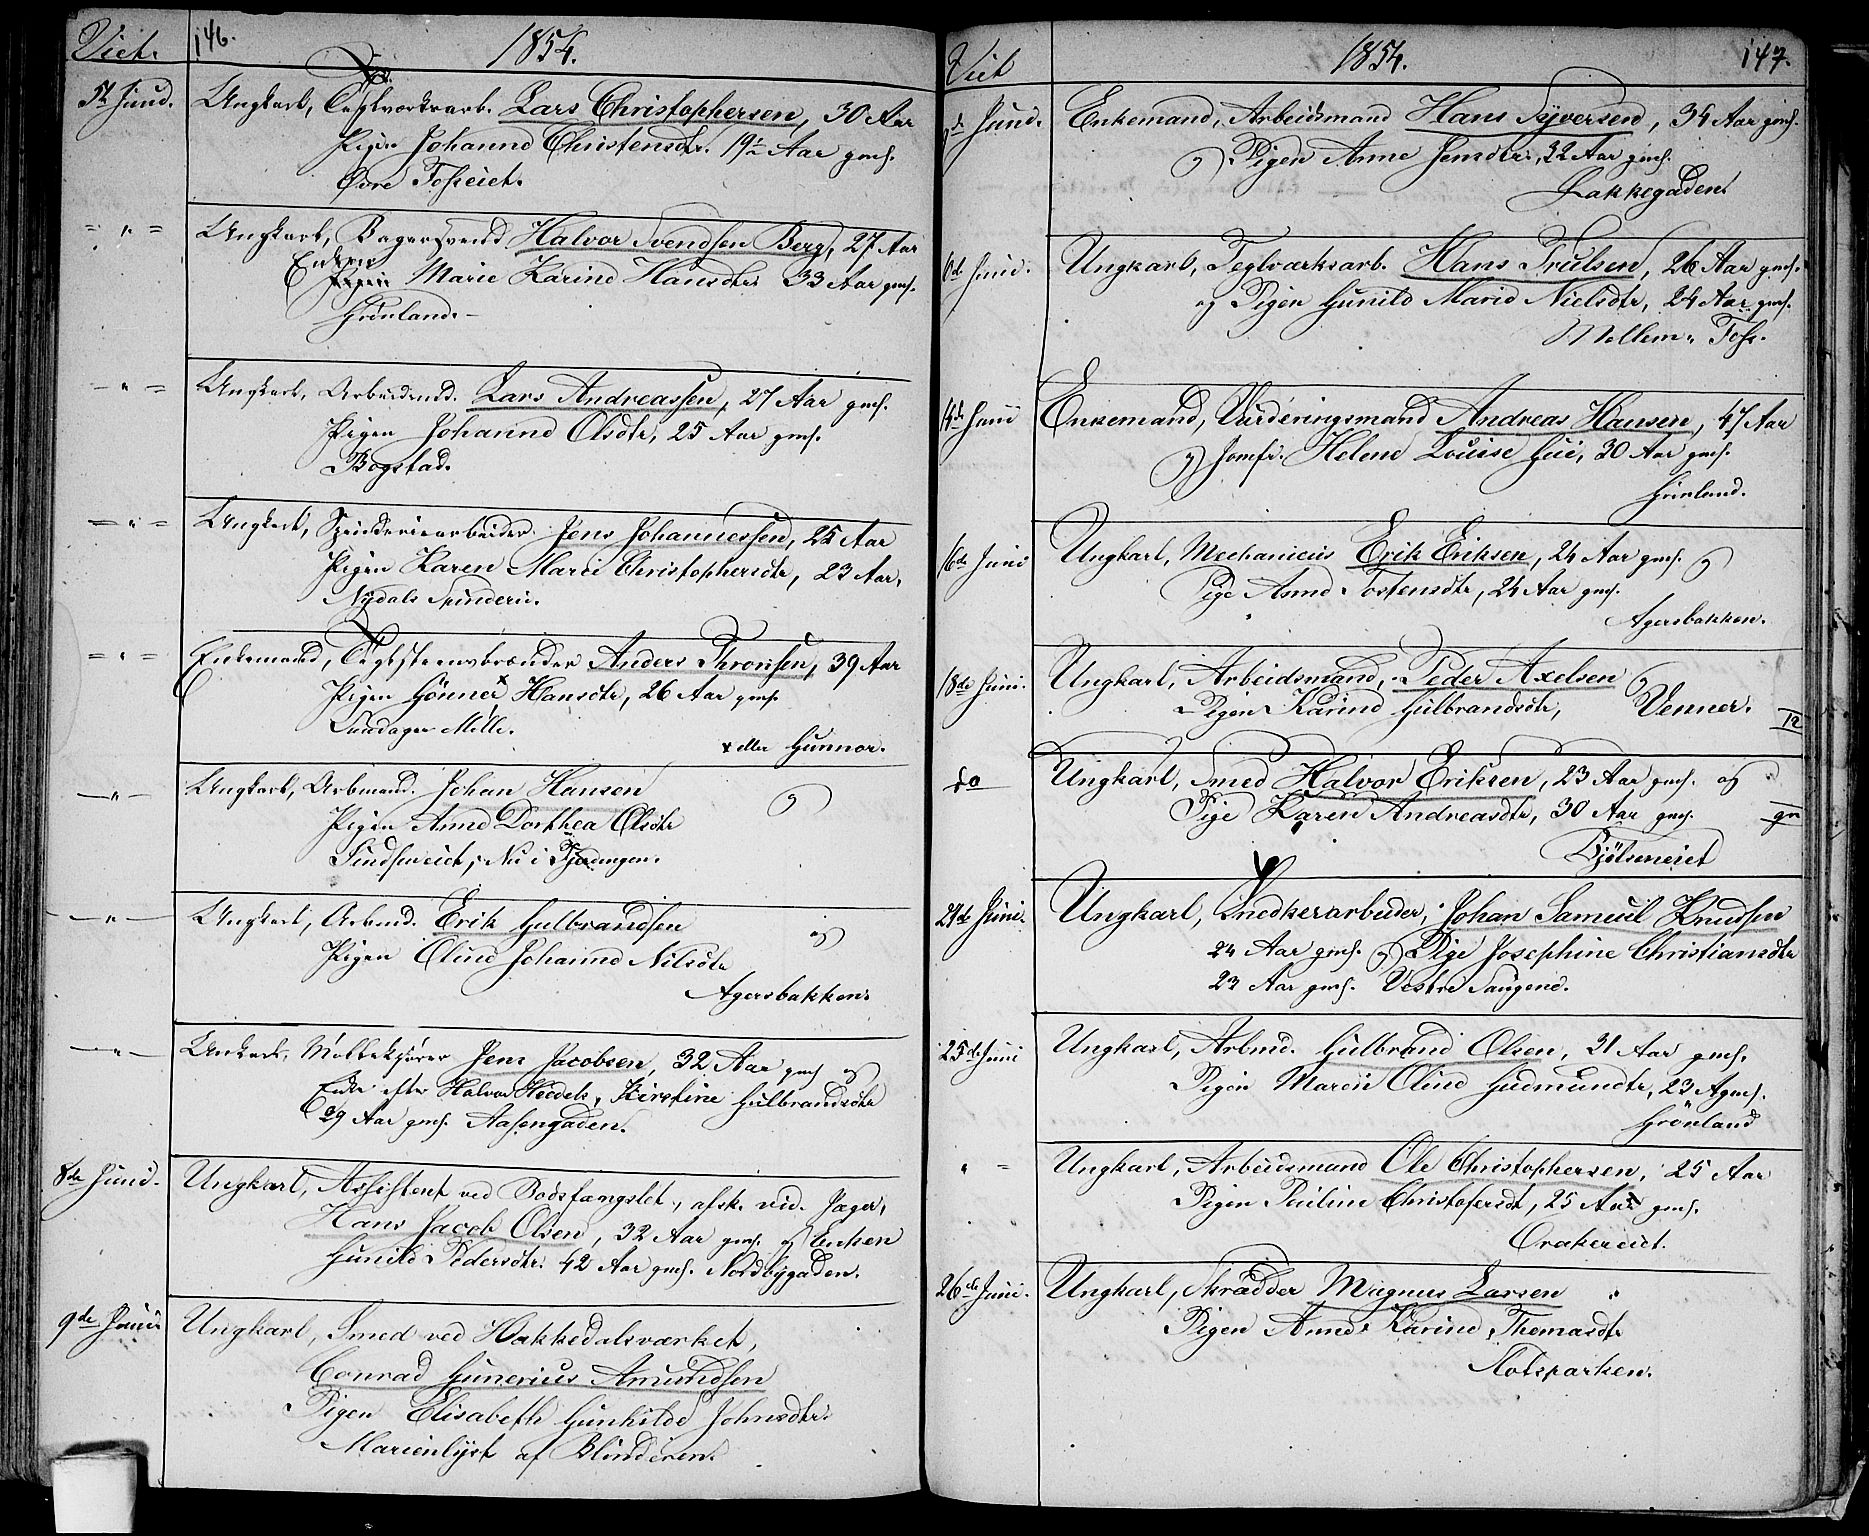 Viet. 146. 1854.
5te Juni. Ungkarl, Teglværksarb. Lars Christophersen, 30 Aar
Pigen Johanne Christensdtr. 19½ Aar gmf.
Øvre Fosseiet.
" Ungkarl, Bagersvend Halvor Svendsen Berg, 27 Aar
Enken
Marie Karine Hansdtr. 33 Aar gmf.
Grønland.
" Ungkarl, Arbeidsmd. Lars Andreassen, 27 Aar gmf.
Pigen Johanne Olsdtr, 25 Aar gmf.
Bogstad.
" Ungkarl, Spinderiearbeider Jens Johannessen, 25 Aar
Pigen Karen Marie Christophersdtr, 23 Aar,
Nydals Spinderi.
" Enkemand, Teglsteensbrænder Anders Thronsen, 39 Aar
Pigen Gønner x Hansdtr, 26 Aar gmf.
Mølle.
x eller Gunnor.
" Ungkarl, Arbmand. Johan Hansen og
Pigen Anne Dorthea Olsdtr
Nu i Tjerdingen.
" Ungkarl, Arbmd. Erik Gulbrandsen og
Pigen Oline Johanne Nilsdtr
Agersbakken.
" Unkarl, Møllekjører Jens Jacobsen, 32 Aar gmf og
Enke efter Halvor Kirstine Gulbrandsdtr
39 Aar gmf. Aasengaden.
8de Juni. Ungkarl, Assistent ved Bodsfængslet, afsk. vid. Jæger,
Hans Jacob Olsen, 32 Aar gmf. og Enken
Gunild Pedersdtr. 42 Aar gmf. Nordbygaden.
9de Juni Ungkarl, Smed ved Hakkedalsværket,
Conrad Gunerius Amundsen
Pigen Elisabeth Gunhilde Johnsdtr.
Marienlyst af Blinderen.
Viet 1854. 147.
9de Juni. Enkemand, Arbeidsmand Hans Syversen, 34 Aar gmf.
og Pigen Anne Jensdtr, 32 Aar gmf.
Lakkegaden.
Juni. Ungkarl, Teglværksarb. Hans Trulsen, 26 Aar gmf.
og Pigen Gunild Marie Nielsdtr, 24 Aar gmf.
Mellem-Foss.
14de Juni Enkemand, Vurderingsmand Andreas Hansen, 47 Aar
og Jomfr. Helene Louise 30 Aar gmf.
Grønland.
16de Juni Ungkarl, Mechanicus Erik Eriksen, 24 Aar gmf. og
Pige Anne Tostensdtr, 24 Aar gmf.
Agersbakken.
18de Juni. Ungkarl, Arbeidsmand, Peder Axelsen og
Pigen Karine Gulbrandsdtr, Venner.
do Ungkarl, Smed Halvor Eriksen, 23 Aar gmf. og
Pige Karen Andreasdtr, 30 Aar gmf.
Bjølseneiet
21de Juni. Ungkarl, Snedkerarbeider, Johan Samuel Knudsen
24 Aar gmf. og Pige Josephine Christiansdtr
23 Aar gmf. Vestre Saugene.
25de Juni Ungkarl, Arbmd. Gulbrand Olsen, 31 Aar gmf.
Pigen Maren Oline Gudmundtr, 23 A gmf.
Grønland
" Ungkarl, Arbeidsmand Ole Christophersen, 25 Aar
Pigen Pauline Christofersdt, 25 Aar gmf.
Orakereiet.
26de Juni. Ungkarl, Skrædder Magnus Larsen
Pigen Anne Karine Thomasdtr
Slotsparken.